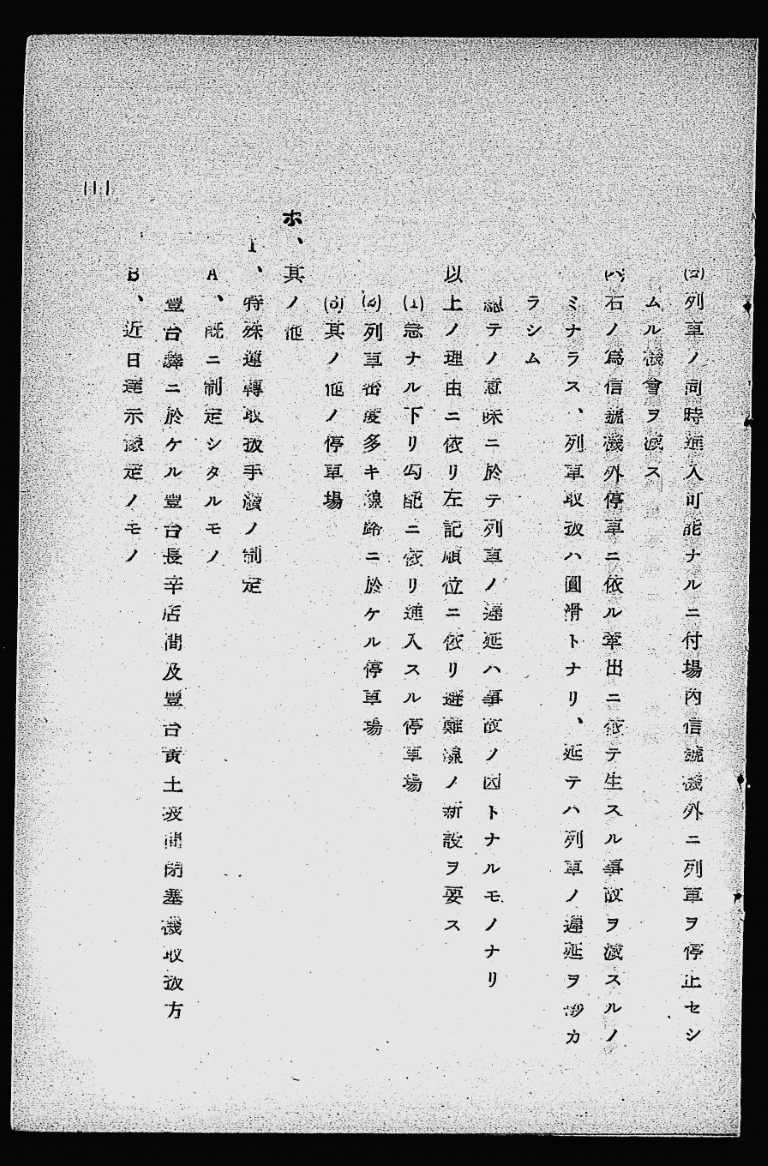 (ロ)列車ノ同時進入可能ナルニ付場内信號機外ニ列車ヲ停止セシ
ムル機會ヲ減ス
(ハ)右ノ爲信號機外停車ニ依ル牽出ニ依テ生スル事故ヲ減スルノ
ミナラス、列車取扱ハ圓滑トナリ、延テハ列車ノ遲延ヲ少カ
ラシム
總テノ意味ニ於テ列車ノ遲延ハ事故ノ因トナルモノナリ
以上ノ理由ニ依リ左記順位ニ依リ避難線ノ新設ヲ要ス
(1)急ナル下リ勾配ニ依リ進入スル停車場
(2)列車密度多キ線路ニ於ケル停車場
(3)其ノ他ノ停車場
ホ、其ノ他
1、特殊運轉取扱手續ノ制定
A、既ニ制定シタルモノ
豐台驛ニ於ケル豐台長辛店間及豐台黄土坡間閉塞機取扱方
B、近日達示豫定ノモノ